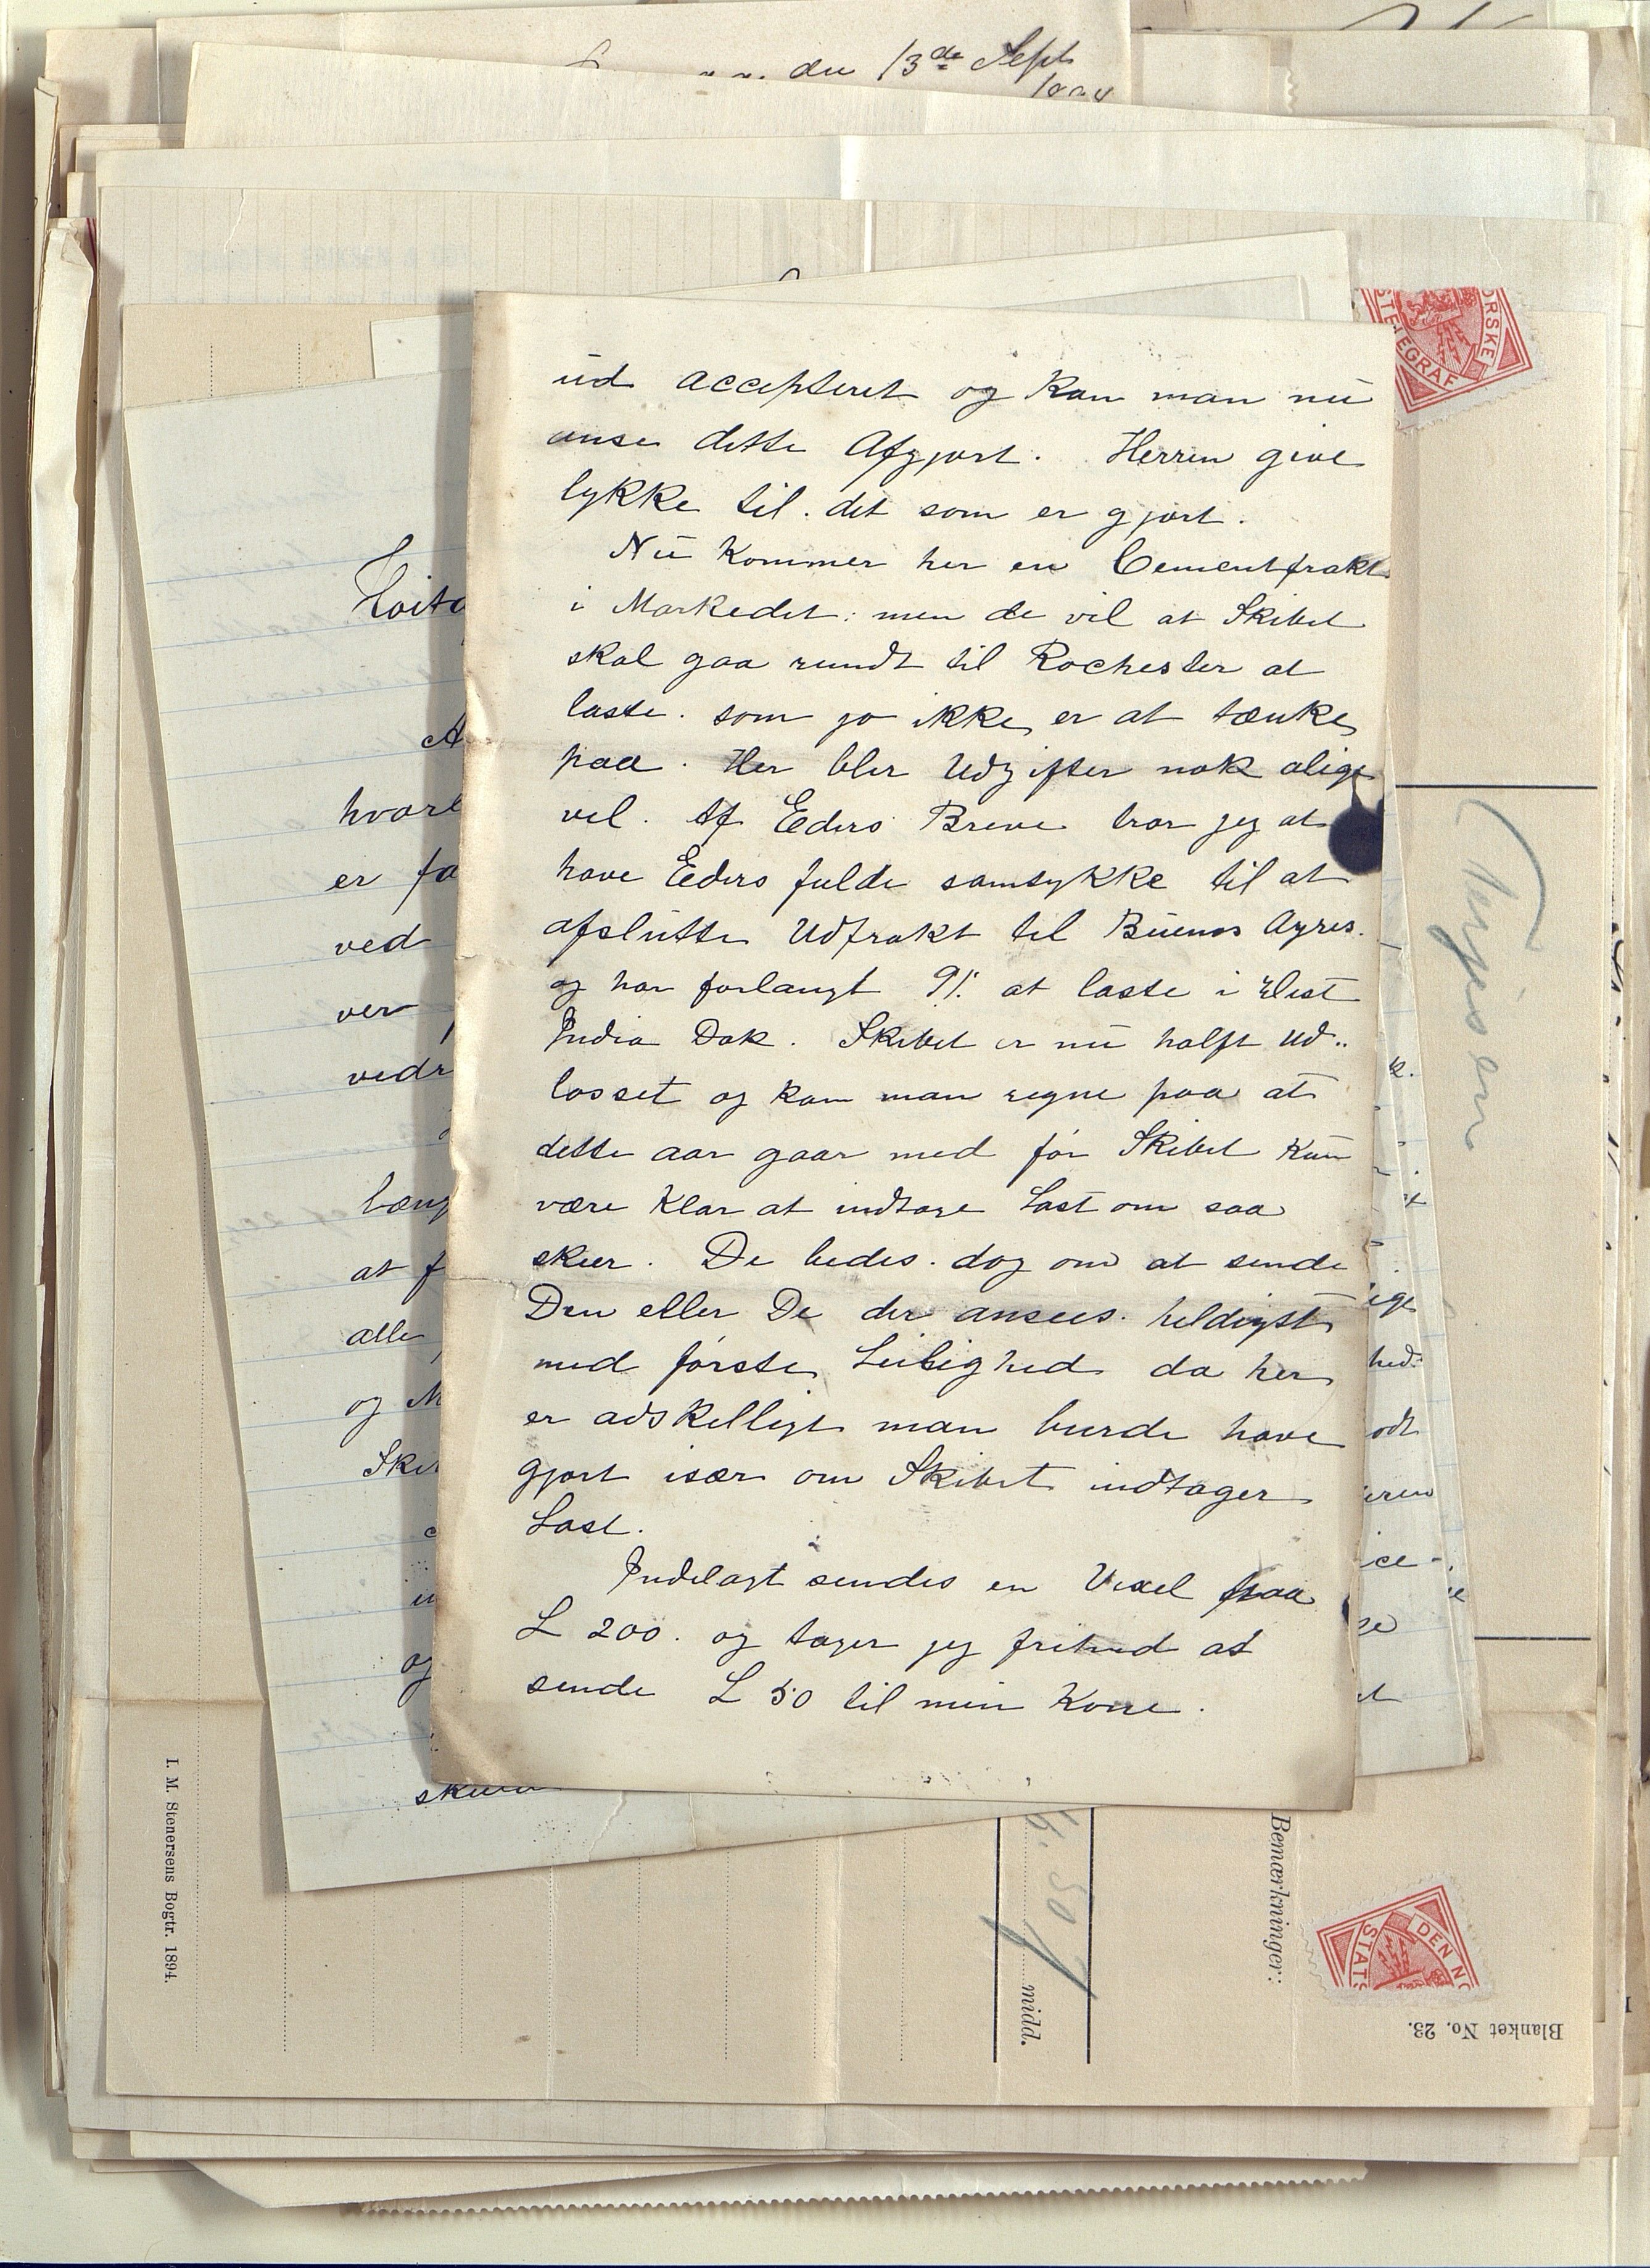 den 13de Sept
ud accepteret og kan man nu
anse dette Afgjort. Herren give
lykke til. det som er gjort.
Nu kommer her en Cementfrakt
i Markedet: men de vil at Skibet
skal gaa rundt til Rochester at
laste. som jo ikke er at tænke
paa. Her blir Udgifter nok alige
vel. Af Eders Breve tror jeg at
have Eders fulde samtykke til at
afslutte Udfrakt til Buenos Ayres.
og har forlangt 9/. at laste i West
India Dok. Skibet er nu halft ud..
losset og kan man regne paa at
dette aar gaar med før Skibet kan
være klar at indtage Last om saa
skeer. De bedes. dog om at sende
Den eller De der ansees. heldigst
med første Leilighed da her
er adskelligt man burde have
gjort især om Skibet indtager
Last.
Indelagt sendes en Vexel paa
L 200. og tager jeg frihed at
sende L 50 til min Kone.
hvorl
er fo
ved
ver
vedr
læng
at f
alle
og M
Skib
og
ORSKE
STE
EGRAF
Terjesen
I. M. Stenersens Bogtr. 1894.
50
midd.
Bemærkninger:
DEN NO
STATS
Blanket No. 23.